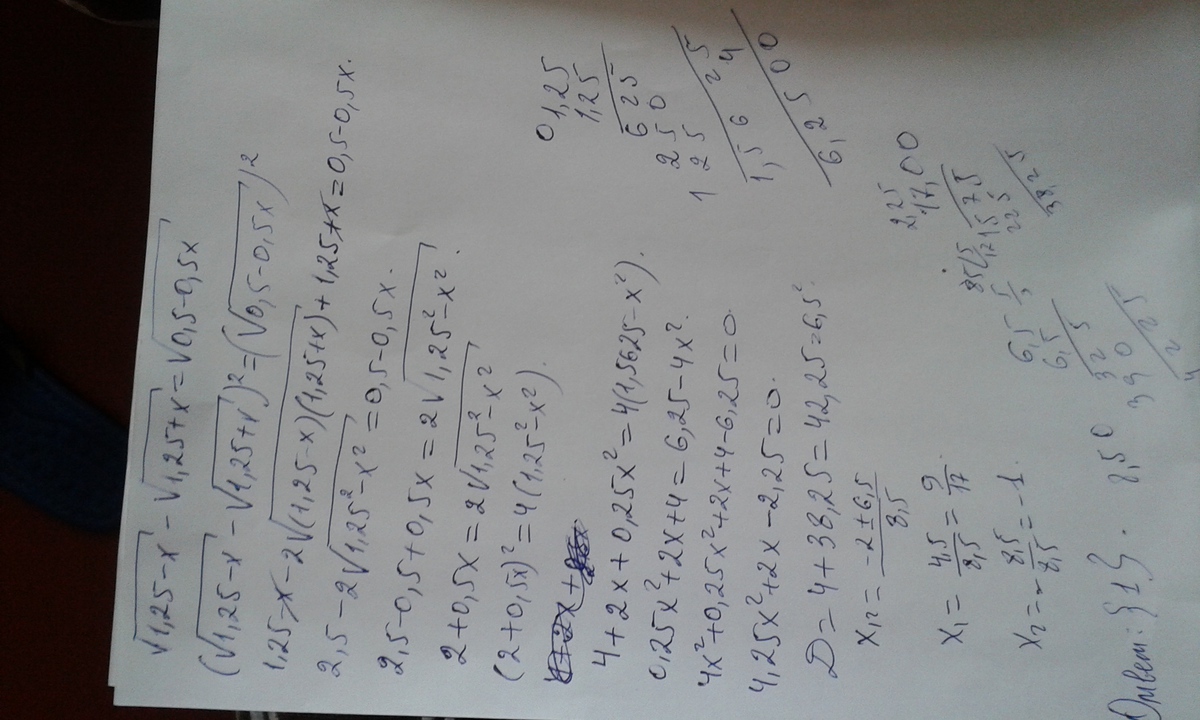 √1,25-x - √1,25+x = √0,5-0,5x
(√1,25-x - √1,25+x)² = (√0,5-0,5x)²
1,25-x-2√(1,25-x)(1,25+x)+1,25+x=0,5-0,5x.
2,5-2√1,25²-x² = 0,5-0,5x.
2,5-0,5+0,5x = 2√1,25²-x².
2+0,5x = 2√1,25²-x²
(2+0,5x)² = 4(1,25²-x²).
4+2x+0,25x² = 4(1,5625-x²).
0,25x²+2x+4 = 6,25-4x².
4x²+0,25x²+2x+4-6,25=0.
4,25x²+2x-2,25=0.
D=4+38,25=42,25=6,5².
x₁₂ = -2±6,5 / 8,5
x₁ = 4,5/8,5 = 9/17.
x₂ = -8,5/8,5 = -1.
Ответ: {1}.
0 1,25
1,25
6 25
2 5 0
1 2 5
1,5 6 2 5
4
6,2 5 0 0
2,25
17,00
15 7 5
22 5
38,25
6,5
6,5
32 5
39 0
42 25
8,50